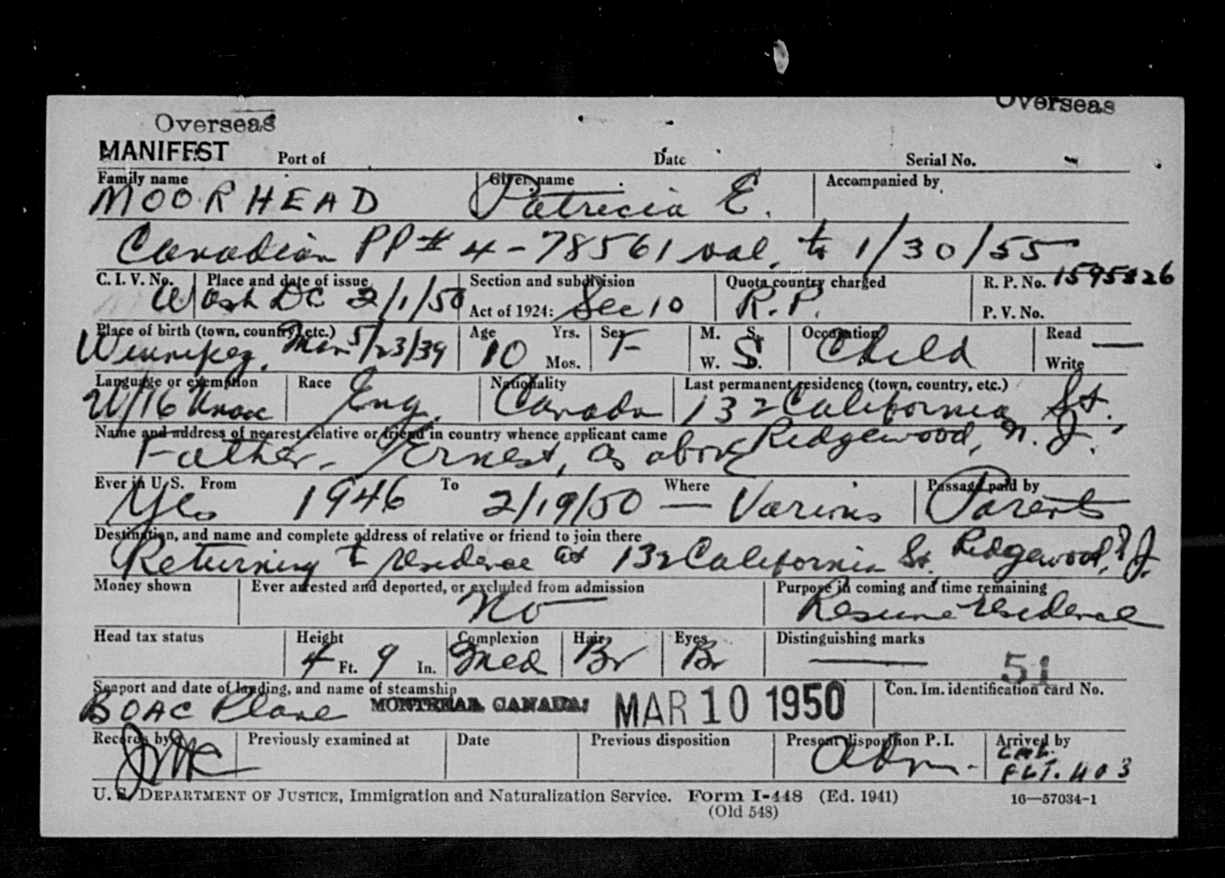 Overseas
Overseas
MANIFEST Port of Date Serial No.
Family name Given name Accompanied by
MOORHEAD Patricia E.
Canadian PP# 4-78561 val. to 1/30/55
C. I. V. No. Place and date of issue Section and subdivision Quota country charged R. P. No. 1595826
Wash DC 2/1/50 Act of 1924: Sec 10 R.P. P. V. No.
Place of birth (town, country, etc.) Age Yrs. Sex M. S. Occupation Read —
Winnipeg, Man 5/23/39 10 Mos. F W. D. S Child Write
Language or exemption Race Nationality Last permanent residence (town, country, etc.)
U/16 Eng. Canada 132 California St.
Name and address of nearest relative or friend in country whence applicant came Ridgewood, N.J.
Father - Ernest, as above
Ever in U.S. From To Where Passage paid by
Yes 1946 2/19/50 — Various Parents
Destination, and name and complete address of relative or friend to join there
Returning to residence at 132 California St. Ridgewood, N.J.
Money shown Ever arrested and deported, or excluded from admission Purpose in coming and time remaining
No Resume residence
Head tax status Height Complexion Hair Eyes Distinguishing marks
4 Ft. 9 In. Med Br Br —
51
Seaport and date of landing, and name of steamship Con. Im. identification card No.
BOAC Plane MONTREAL CANADA MAR 10 1950
Records by Previously examined at Date Previous disposition Present disposition P. I. Arrived by
Adm. FLT. 403
U. S. DEPARTMENT OF JUSTICE, Immigration and Naturalization Service. Form I-448 (Ed. 1941) 16—57034-1
(Old 548)